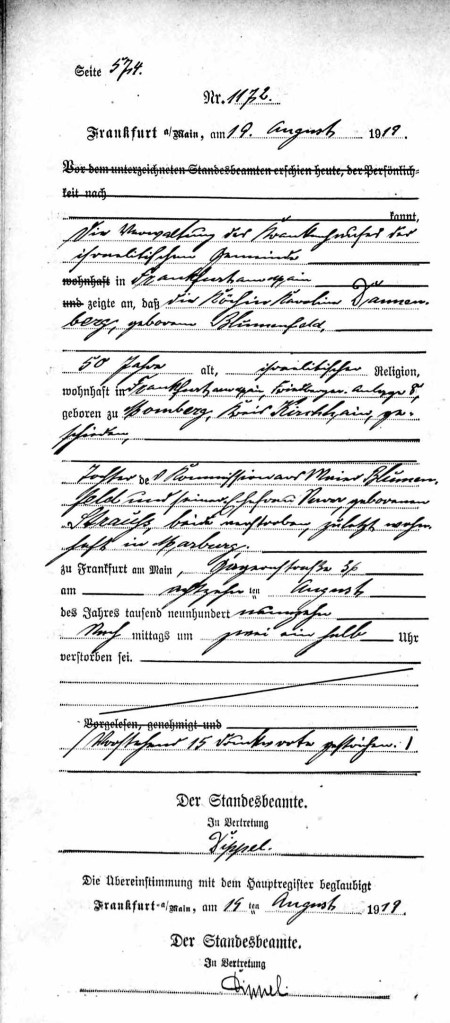 Seite 574.
Nr. 1172.
Frankfurt a/Main, am 19. August 1919
Vor dem unterzeichneten Standesbeamten erschien heute, der Persönlich-
keit nach
kannt,
Die Verwaltung des Krankenhauses der
israelitischen Gemeinde
wohnhaft in Frankfurt am Main
und zeigte an, daß die Köchin Karolin Dannen-
berg, geborene Blumenfeld,
50 Jahre alt, israelitischer Religion,
wohnhaft in Frankfurt am Main, Anlage 8,
geboren zu Momberg, Kreis Kirchhain, ge-
schieden,
Tochter des Kommissionärs Meier Blumen-
feld und seiner Ehefrau geborenen
Strauß, beide verstorben, zuletzt wohn-
haft in Marburg,
zu Frankfurt am Main, Gagernstraße 36
am achtzehnten August
des Jahres tausend neunhundert neunzehn
Nach mittags um zwei ein halb Uhr
verstorben sei.
Vorgelesen, genehmigt und
Vorstehend 15 Druckworte gestrichen.
Der Standesbeamte.
In Vertretung
Dippel.
Die Übereinstimmung mit dem Hauptregister beglaubigt
Frankfurt a/Main, am 19ten August 1919.
Der Standesbeamte.
In Vertretung
Dippel